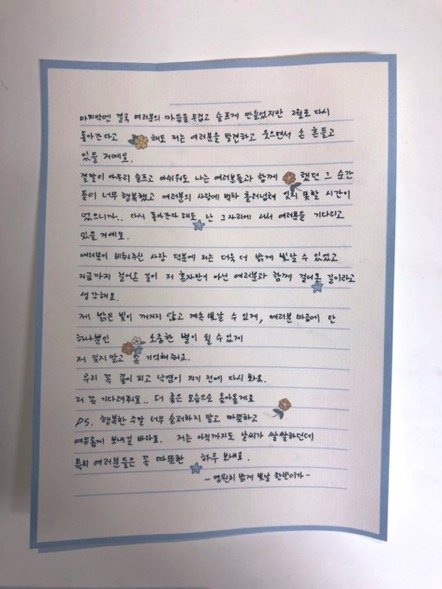 마지막엔 결국 여러분의 마음을 무겁고 슬프게 만들었지만 2월로 다시
돌아간다고 해도 저는 여러분을 발견하고 웃으면서 손 흔들고
있을 거예요.
결말이 아무리 슬프고 아쉬워도 나는 여러분들과 함께 했던 그 순간
들이 너무 행복했고 여러분의 사랑에 벅차 흘러넘쳐 잊지 못할 시간이
었으니까.. 다시 돌아간다 해도 난 그 자리에 서서 여러분을 기다리고
있을 거예요.
여러분이 비춰주신 사랑 덕분에 저는 더욱 더 밝게 빛날 수 있었고
지금까지 걸어온 길이 저 혼자만이 아닌 여러분과 함께 걸어온 길이라고
생각해요.
제 밝은 빛이 꺼지지 않고 계속 빛날 수 있게, 여러분 마음에 단
하나뿐인 소중한 별이 될 수 있게
저 잊지 말고 꼭 기억해줘요.
우리 꼭 꽃이 피고 낙엽이 지기 전에 다시 봐요.
저 꼭 기다려줘요.. 더 좋은 모습으로 돌아올게요
P.S. 행복한 주말 너무 슬퍼하지 말고 따뜻하고
여유롭게 보내길 바라요. 저는 아직까지도 날씨가 쌀쌀하던데
특히 여러분들은 꼭 따뜻한 하루 보내요.
- 영원히 밝게 빛날 한별이가 -